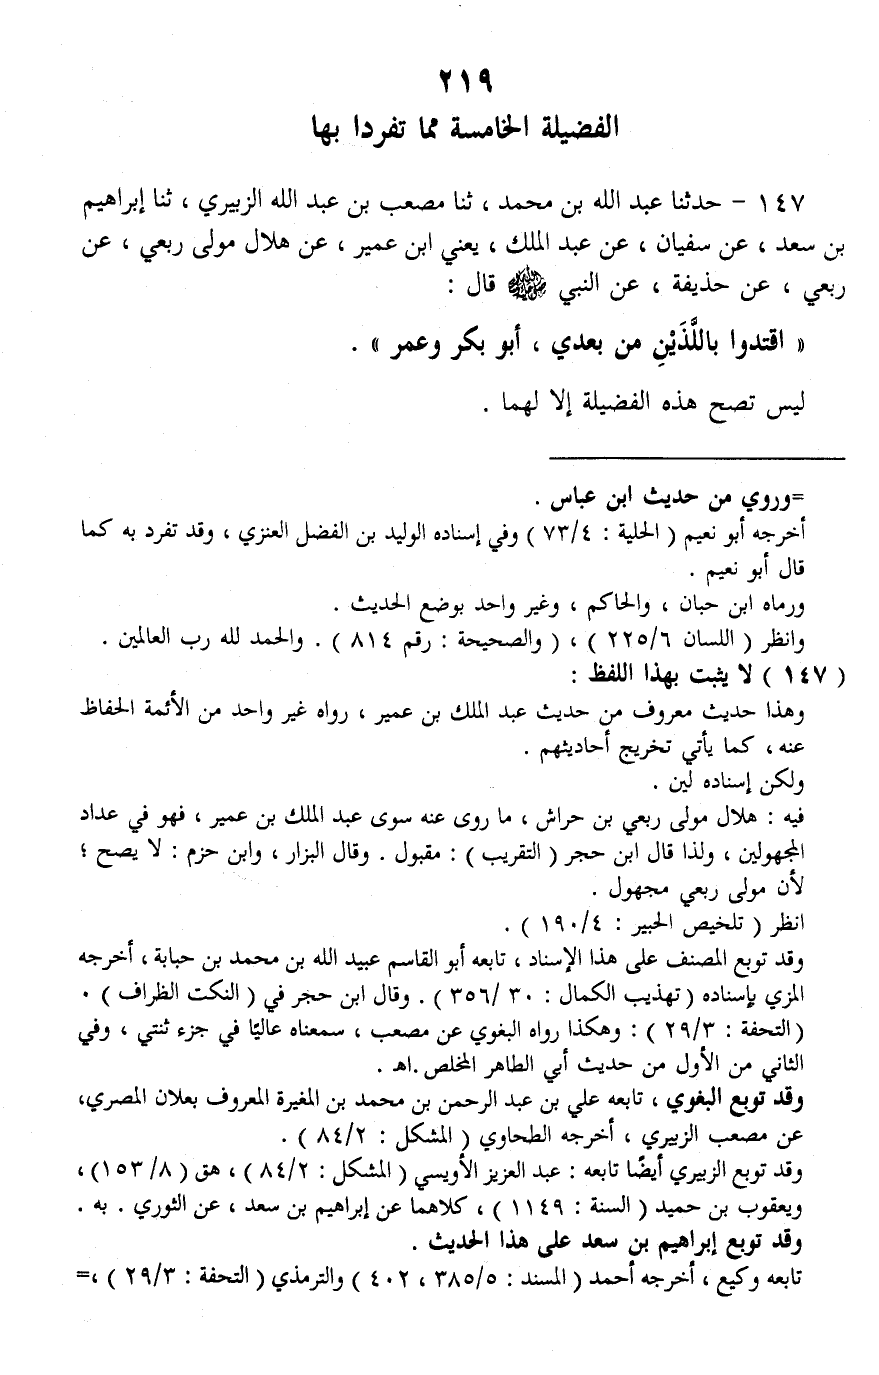 ٢١٩
الفضيلة الخامسة مما تفردا بها
١٤٧ - حدثنا عبد الله بن محمد ، ثنا مصعب بن عبد الله الزبيري ، ثنا إبراهيم
بن سعد ، عن سفيان ، عن عبد الملك ، يعني ابن عمير ، عن هلال مولى ربعي ، عن
ربعي ، عن حذيفة ، عن النبي ﷺ قال :
« اقتدوا باللَّذَيْنِ من بعدي ، أبو بكر وعمر » .
ليس تصح هذه الفضيلة إلا لهما .
=وروي من حديث ابن عباس .
أخرجه أبو نعيم ( الحلية : ٧٣/٤ ) وفي إسناده الوليد بن الفضل العنزي ، وقد تفرد به كما
قال أبو نعيم .
ورماه ابن حبان ، والحاكم ، وغير واحد بوضع الحديث .
وانظر ( اللسان ٢٢٥/٦ ) ، ( والصحيحة : رقم ٨١٤ ) . والحمد لله رب العالمين .
( ١٤٧ ) لا يثبت بهذا اللفظ :
وهذا حديث معروف من حديث عبد الملك بن عمير ، رواه غير واحد من الأئمة الحفاظ
عنه ، كما يأتي تخريج أحاديثهم .
ولكن إسناده لين .
فيه : هلال مولى ربعي بن حراش ، ما روى عنه سوى عبد الملك بن عمير ، فهو في عداد
المجهولين ، ولذا قال ابن حجر ( التقريب ) : مقبول . وقال البزار ، وابن حزم : لا يصح ؛
لأن مولى ربعي مجهول .
انظر ( تلخيص الحبير : ١٩٠/٤ ) .
وقد توبع المصنف على هذا الإسناد ، تابعه أبو القاسم عبيد الله بن محمد بن حبابة ، أخرجه
المزي بإسناده ( تهذيب الكمال : ٣٠ /٣٥٦ ) . وقال ابن حجر في ( النكت الظراف ) .
( التحفة : ٢٩/٣ ) : وهكذا رواه البغوي عن مصعب ، سمعناه عاليًا في جزء ثنتي ، وفي
الثاني من الأول من حديث أبي الطاهر المخلص .اهـ .
وقد توبع البغوي ، تابعه علي بن عبد الرحمن بن محمد بن المغيرة المعروف بعلان المصري،
عن مصعب الزبيري ، أخرجه الطحاوي ( المشكل : ٨٤/٢ ) .
وقد توبع الزبيري أيضًا تابعه : عبد العزيز الأويسي ( المشكل : ٨٤/٢ ) ، هق ( ٨/ ١٥٣ ) ،
ويعقوب بن حميد ( السنة : ١١٤٩ ) ، كلاهما عن إبراهيم بن سعد ، عن الثوري . به .
وقد توبع إبراهيم بن سعد على هذا الحديث .
تابعه وكيع ، أخرجه أحمد ( المسند : ٣٨٥/٥ ، ٤٠٢ ) والترمذي ( التحفة : ٢٩/٣ ) ،=